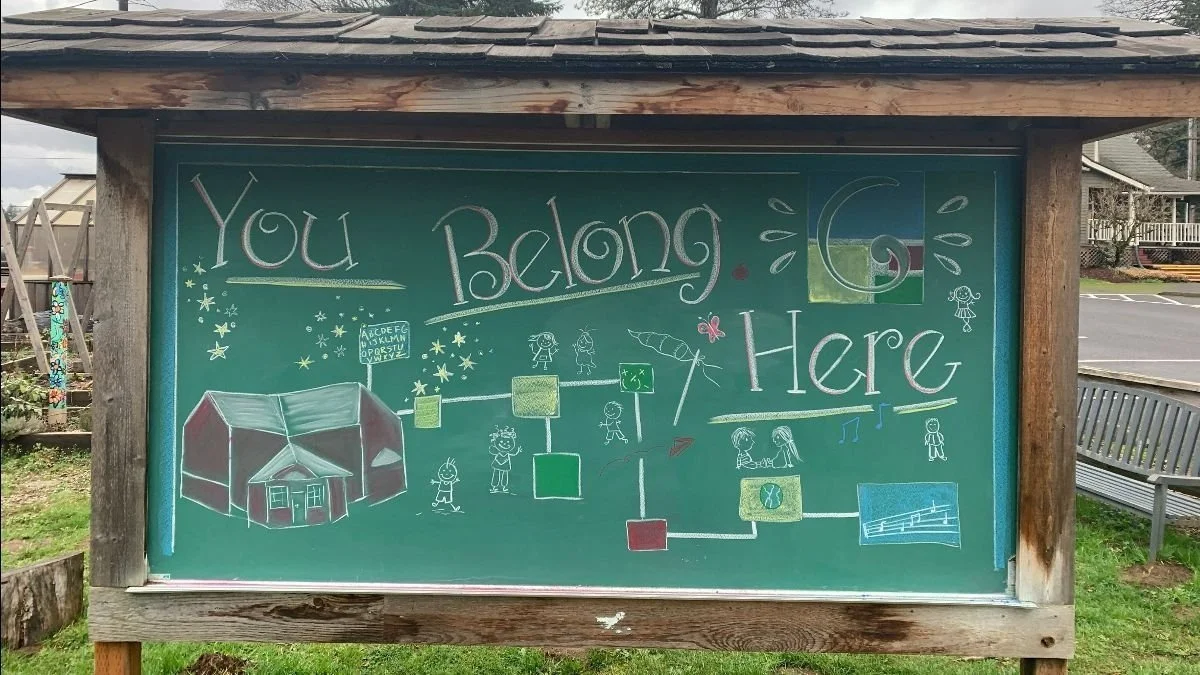 You Belong
Here
ABCDEFG
HIJKLMN
OPQRSTU
VWXYZ